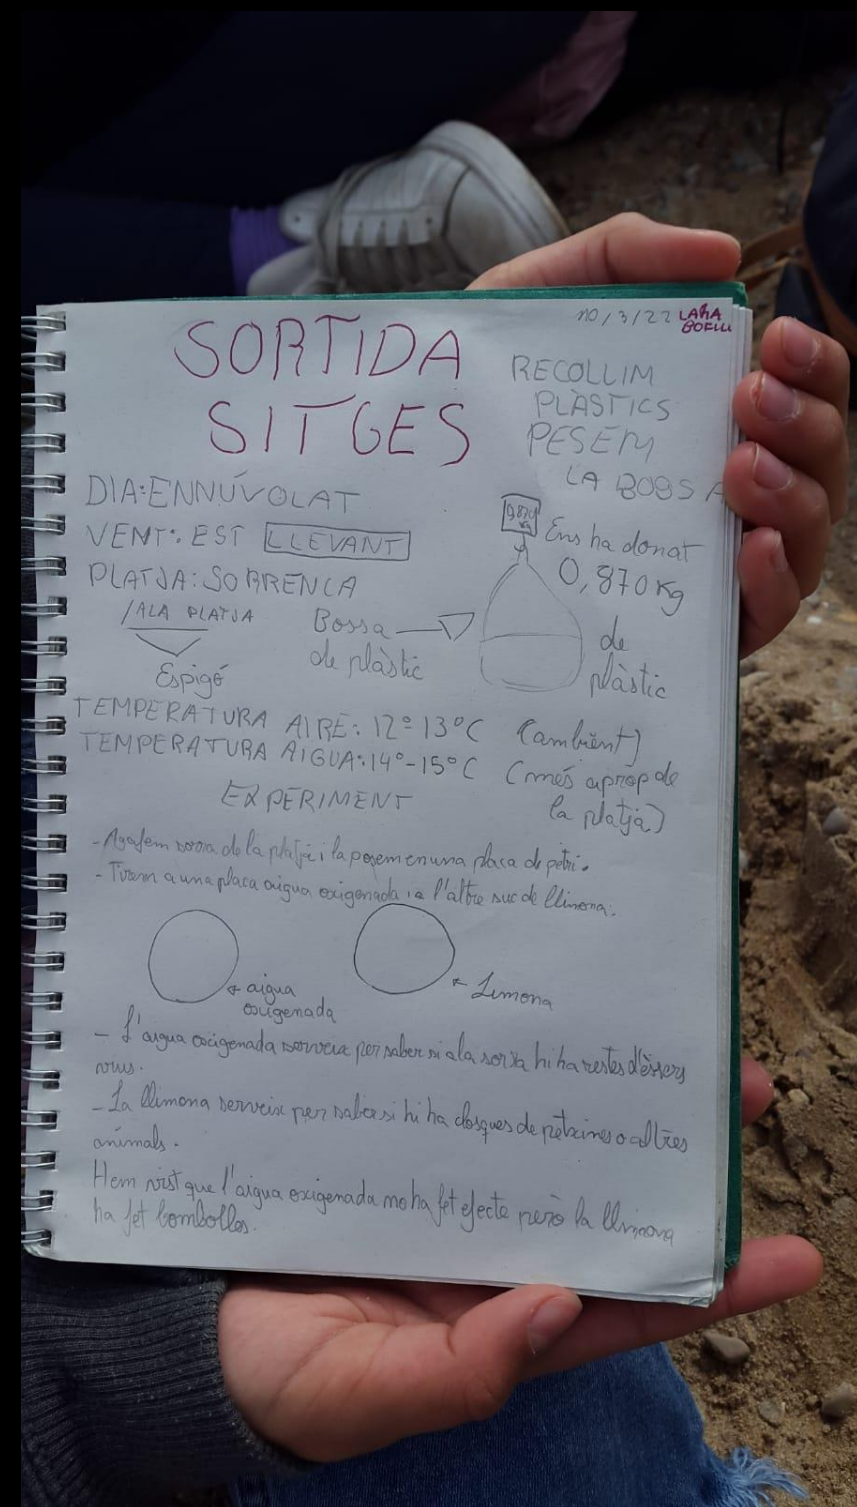 10/3/22 LARA BOFILL
SORTIDA
SITGES
RECOLLIM
PLÀSTICS
PESEM
LA BOSSA
DIA: ENNÚVOLAT
VENT: EST LLEVANT
PLATJA: SORRENCA
/A LA PLATJA
Espigó
Bossa
de plàstic
0,870
kg
Ens ha donat
0,870 kg
de
plàstic
TEMPERATURA AIRE: 12º 13ºC (ambient)
TEMPERATURA AIGUA: 14º-15ºC (més aprop de
la platja)
EXPERIMENT
- Agafem sorra de la platja i la posem en una placa de petri.
- Tirem a una placa aigua oxigenada i a l'altre suc de llimona.
aigua
oxigenada
Limona
- L'aigua oxigenada serveix per saber si a la sorra hi ha restes d'éssers
vius.
- La llimona serveix per saber si hi ha closques de petxines o altres
animals.
Hem vist que l'aigua oxigenada no ha fet efecte però la llimona
ha fet bombolles.